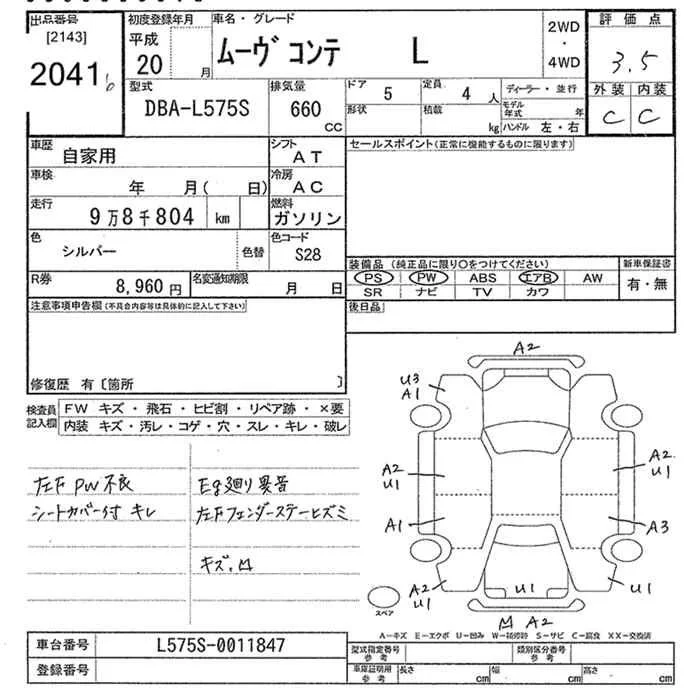 出品番号
[2143]
2041 6
初度登録年月
平成
20 月
車名・グレード
ムーヴ コンテ L
2WD
・
4WD
評価点
3.5
外装 内装
C C
型式
DBA-L575S
排気量
660
CC
ドア 5
定員 4 人
形状
積載 kg
ディーラー・並行
モデル年式 年
ハンドル 左・右
車歴
自家用
シフト
AT
車検
年 月( 日)
冷房
AC
走行
9万8千804 km
燃料
ガソリン
色
シルバー
色替
色コード
S28
R券
8,960円
名変通知期限
月 日
セールスポイント(正常に機能するものに限ります)
装備品 (純正品に限り○をつけてください)
PS PW ABS エアB AW
SR ナビ TV カワ
新車保証書
有・無
後日品
注意事項申告欄(不具合内容等は具体的に記入して下さい)
修復歴 有〔箇所 〕
検査員
記入欄
FW キズ・飛石・ヒビ割・リペア跡・×要
内装 キズ・汚レ・コゲ・穴・スレ・キレ・破レ
左F PW不良
シートカバー付 キレ
Eg廻り異音
左Fフェンダーステーヒズミ
キズ.凹
A2
U3
A1
A2
U1
A2
U1
A1
A3
A2
U1
U1
U1
凹 A2
スペア
A―キズ E―エクボ U―凹み W―補修跡 S―サビ C―腐食 XX―交換済
車台番号
L575S-0011847
登録番号
型式指定番号
参考
類別区分番号
参考
車庫証明用
参考
長さ cm
幅 cm
高さ cm